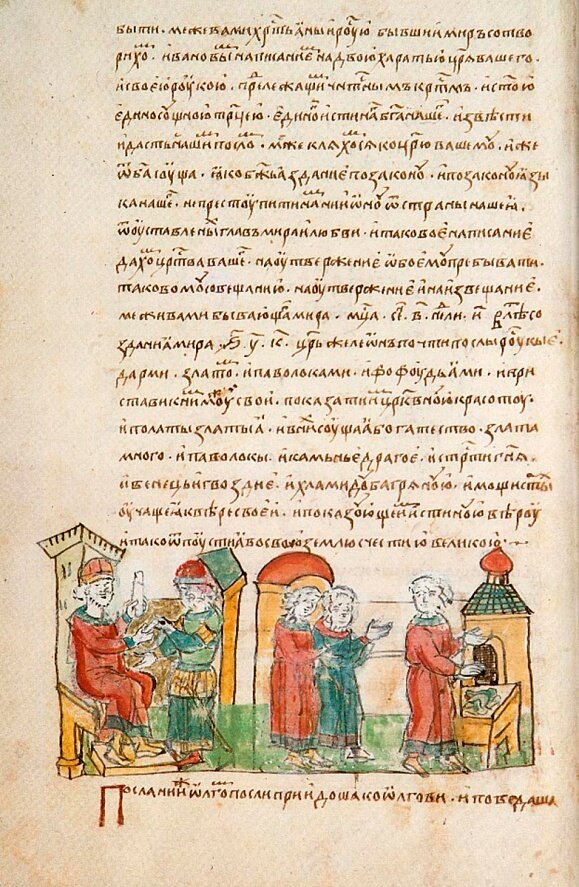 быти . межевами хрⷭ҇тьꙗны и роусью бывшии миръ сотво
рихоⷨ . ивановыⷨ написаниеⷨ на двою харатью цр҃ѧ вашего .
и своею роукою . прⷣлежащиⷨ чⷭ҇тнымъ крⷭ҇тмъ . и ст҃ою
единосоущною трⷪ҇цею . единоⷢ истинаⷢ ба҃ нашеⷢ . извѣсти
и дасть нашиⷨ послоⷨ . мы же кляхоⷨсѧ ко цр҃ю вашемоу . иже
ѿ ба҃ соуща . ꙗко бж҃ьа зданиє по законоу . и по законоу ꙗзы
ка нашеⷢ . не престоупити наⷨ ни иномоу ѿ страны нашеꙗ .
ѿ оуставленыⷯ главъ мира и любви . и таковоє написаниє
дахоⷨ црⷭ҇тва вашеⷢ . на оутвержениє ѡбоємоу пребывати .
таковомоу совещанию . на оутвержениє и на извещаниє .
межи вами бывающаⷢ мира . мцⷭ҇а . сеⷫ . в҃ . нⷣли . и҃ . в лѣⷮ со
зданиꙗ мира . ҂ѕ҃ . у҃ . к҃ . цр҃ь же леѡнъ почти послы роукыє .
дарми . златоⷨ . и паволоками . и фофоудьꙗми . и при
стави к ниⷨ моуⷤ свои . показати иⷨ цр҃квноую красотоу .
и полаты златыꙗ . и в ниⷯ соущаꙗ богатество . злата
много . и паволокы . и каменьє драгоє . и стрⷭ҇ти гн҃ѧ .
и венець и гвоздиє . и хламидоу багрѧноую . и мощи ст҃ыⷯ
оучаще ꙗ к вѣре своєи . и показоующе иⷨ истиною вѣроу
и тако ѿпоусти ꙗ во свою землю с честию великою
Посланиⷤ ѿ ѡлгⷪ посли приидоша ко ѡлгови . и поведаша